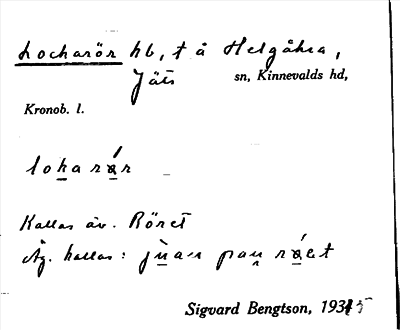 Lockarör hb, t å Helgåkra,
Jäts sn, Kinnevalds hd,
Kronob. l.
lokarår
Kallas äv. Röret
Äg. kallas:
Sigvard Bengtson, 1935